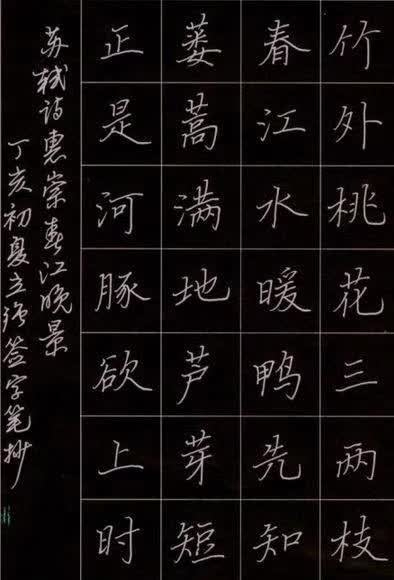 竹外桃花三两枝
春江水暖鸭先知
蒌蒿满地芦芽短
正是河豚欲上时
苏轼诗惠崇春江晚景
丁亥初夏立签字笔抄